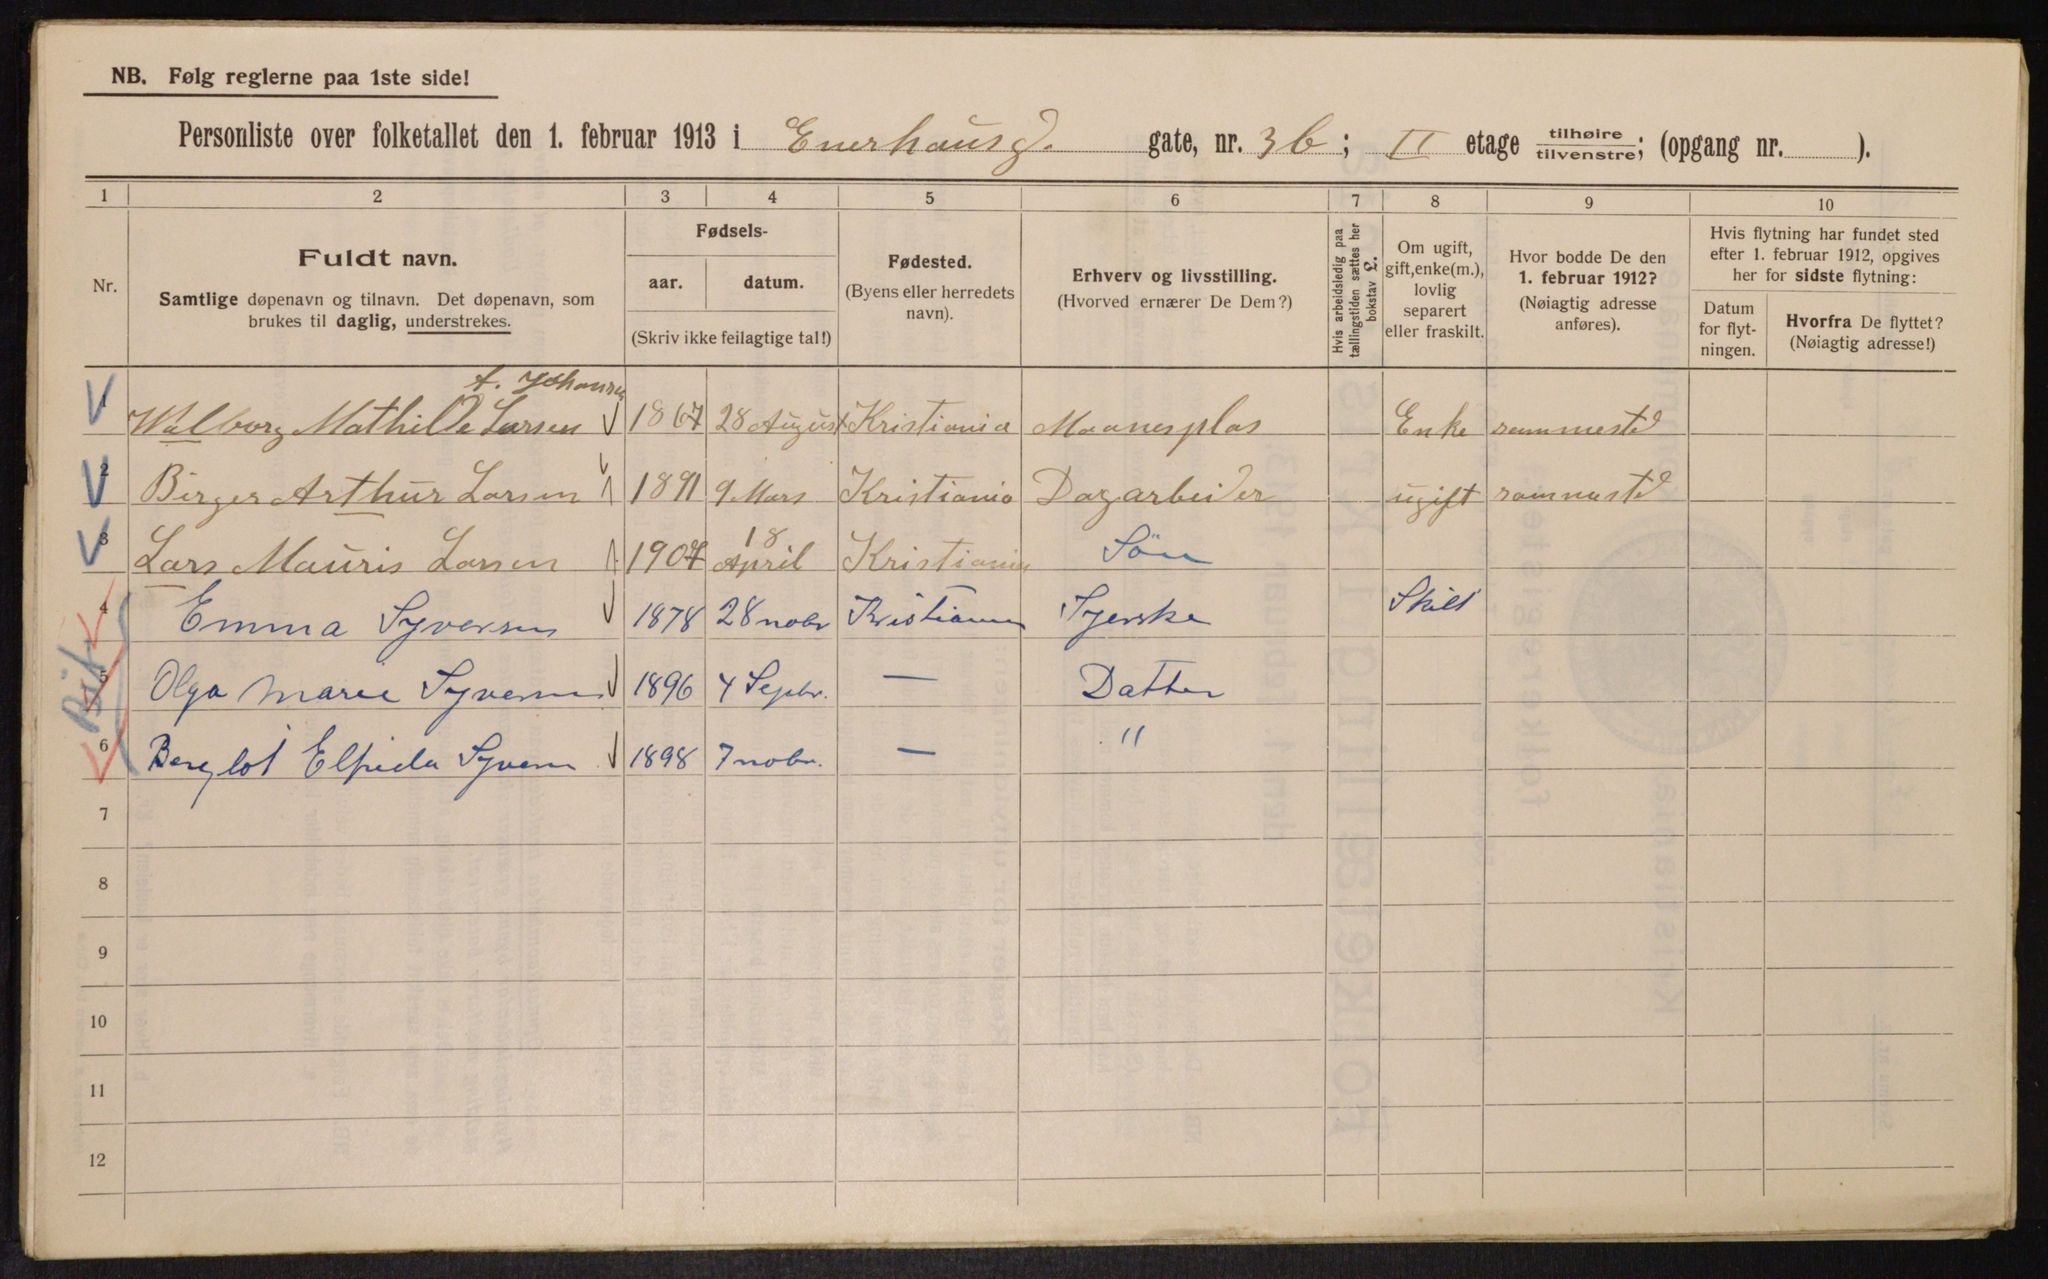 NB. Følg reglerne paa 1ste side!
Personliste over folketallet den 1. februar 1913 i Enerhausg. gate, nr. 3b; II etage tilhøire/tilvenstre; (opgang nr. ).
1 2 3 4 5 6 7 8 9 10
Nr.
Fuldt navn.
Samtlige døpenavn og tilnavn. Det døpenavn, som
brukes til daglig, understrekes.
Fødsels-
aar. datum.
(Skriv ikke feilagtige tal!)
Fødested.
(Byens eller herredets
navn).
Erhverv og livsstilling.
(Hvorved ernærer De Dem?)
Hvis arbeidsledig paa
tællingstiden sættes her
bokstav L.
Om ugift,
gift, enke(m.),
lovlig
separert
eller fraskilt.
Hvor bodde De den
1. februar 1912?
(Nøiagtig adresse
anføres).
Hvis flytning har fundet sted
efter 1. februar 1912, opgives
her for sidste flytning:
Datum
for flyt-
ningen.
Hvorfra De flyttet?
(Nøiagtig adresse!)
f. Johansen
1 Walborg Mathilde Larsen 1867 28 August Kristiania Maanesplas Enke sammested
2 Birger Arthur Larsen 1891 9 Mars Kristiania Dagarbeider ugift sammested
3 Lars Mauris Larsen 1907 18 April Kristiania Søn
4 Emma Syversen 1878 28 nobr Kristiania Syerske Skilt
5 Olga Marie Syversen 1896 4 Sepbr. — Datter
6 Berglot Elfrida Syversen 1898 7 nobr. — "
7
8
9
10
11
12